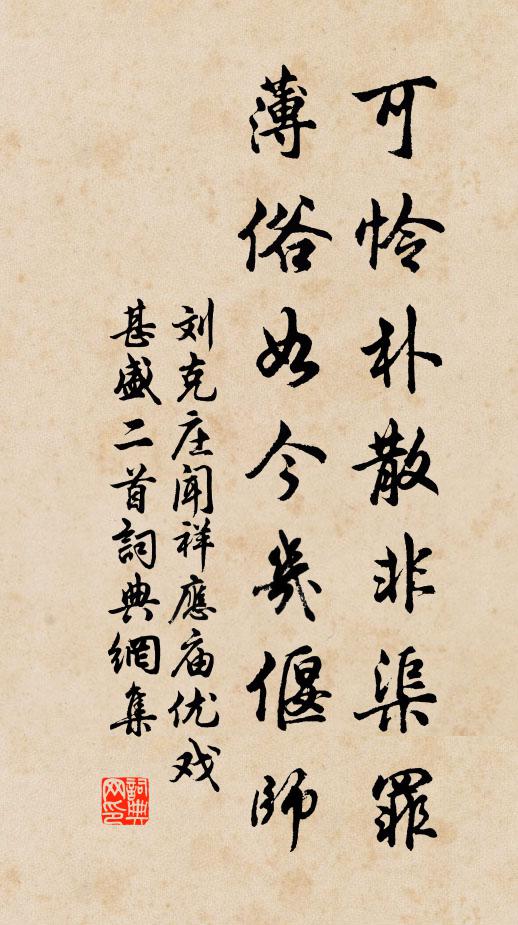 可怜朴散非渠罪
薄俗如今几偃师
刘克庄闻祥應庙优戏
甚盛二首詞典網集
詞典网印